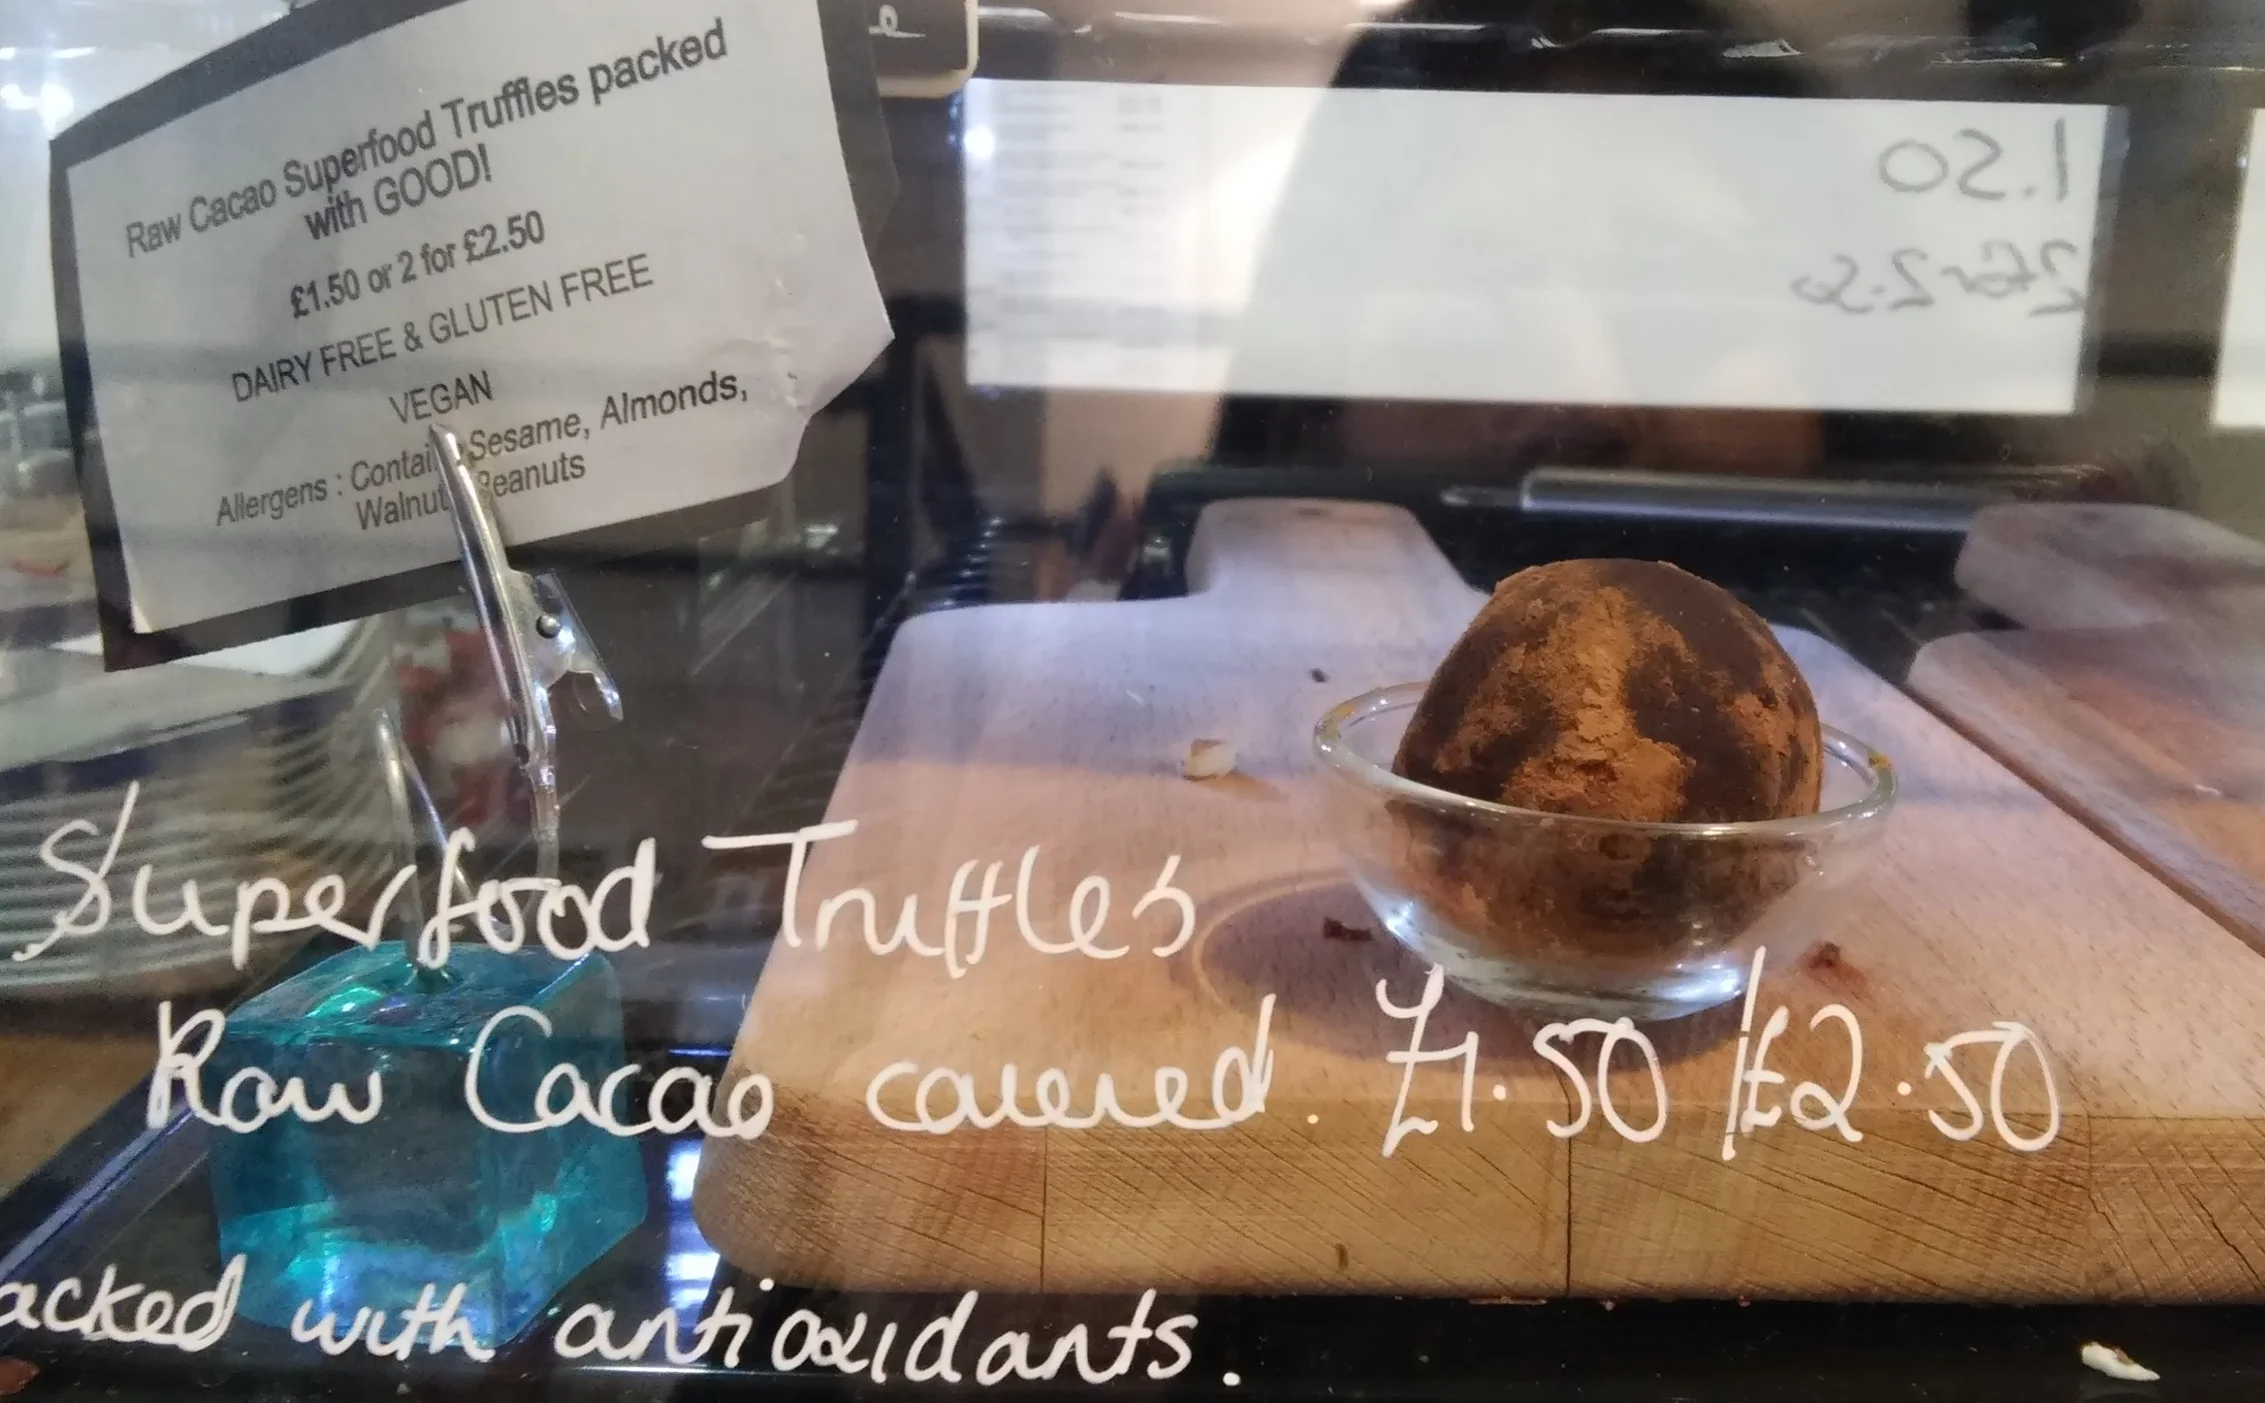 Raw Cacao Superfood Truffles packed
with GOOD!
£1.50 or 2 for £2.50
DAIRY FREE & GLUTEN FREE
VEGAN
Allergens : Contains Sesame, Almonds,
Walnuts Peanuts
1.50
2 for 2.50
Superfood Truffles
Raw Cacao covered. £1.50 / £2.50
acked with antioxidants.